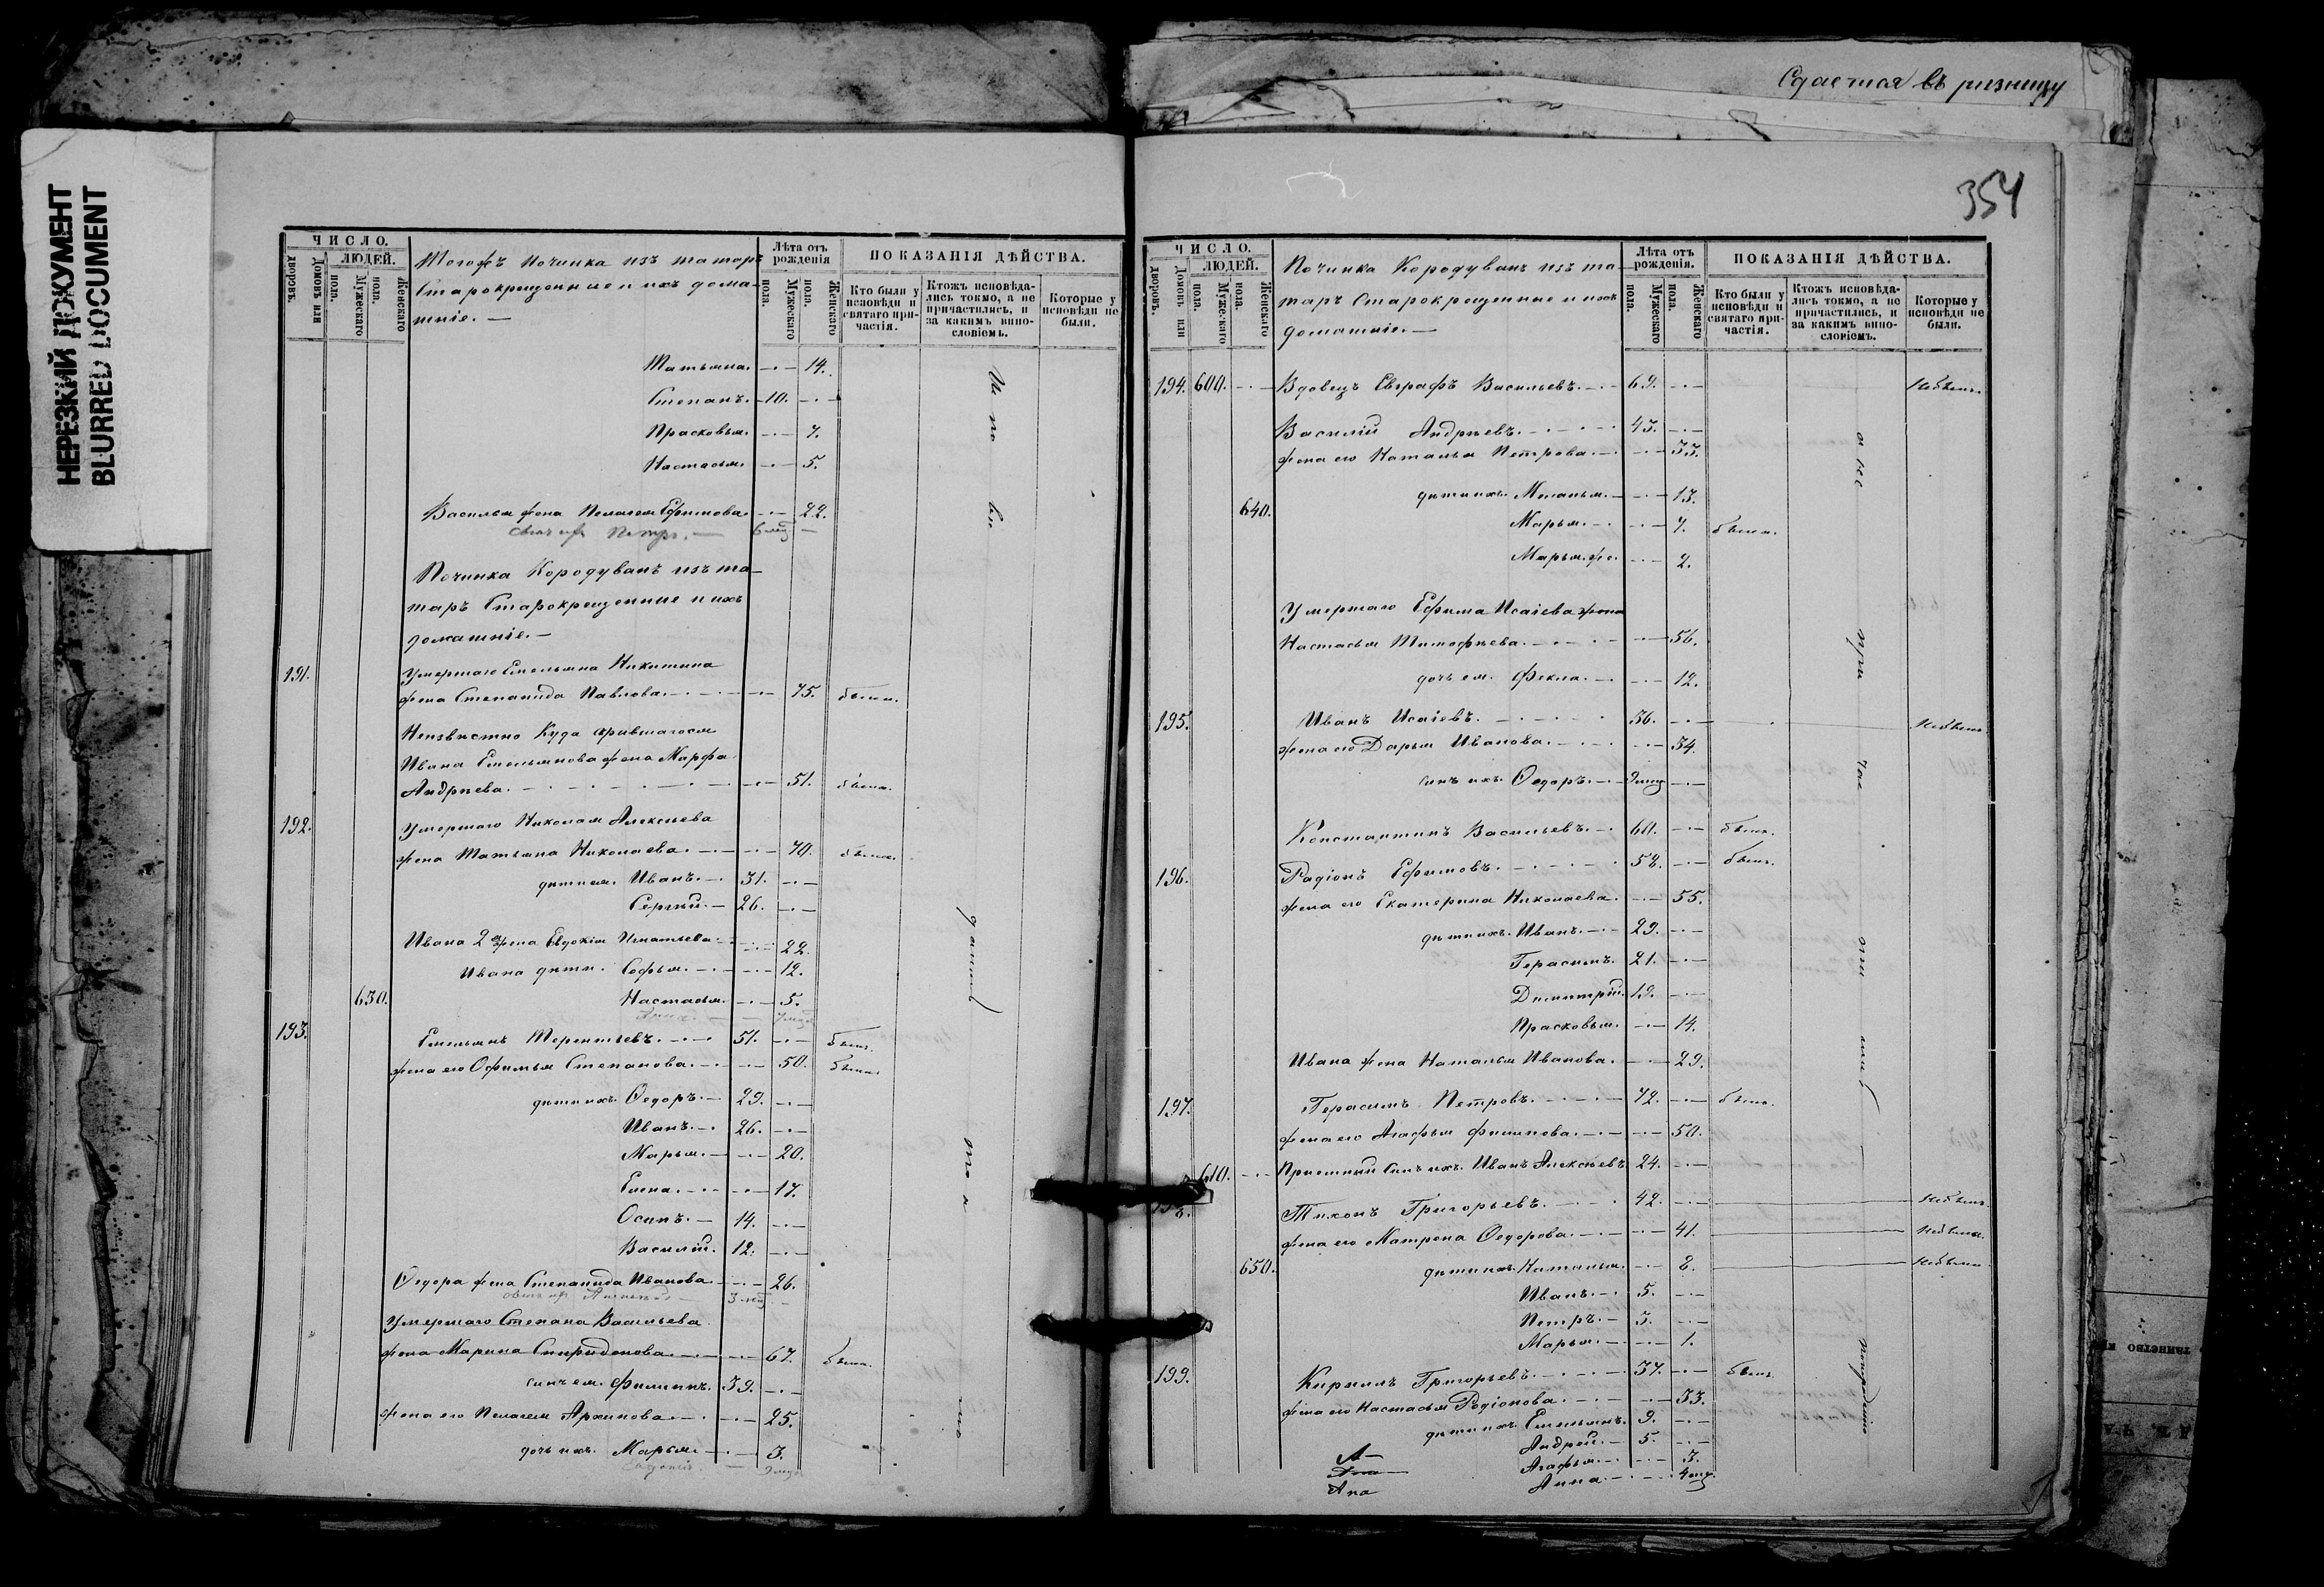 Сдается въ ризницу
НЕРЕЗКИЙ ДОКУМЕНТ
BLURRED DOCUMENT
ЧИСЛО.
ЛЮДЕЙ.
Домовъ или дворовъ.
Мужескаго пола.
Женскаго пола.
Тогожъ починка изъ татаръ
Старокрещенные и ихъ дома-
шніе. —
Лѣта отъ рожденія
Мужескаго пола.
Женскаго пола.
ПОКАЗАНІЯ ДѢЙСТВА.
Кто были у исповѣди и святаго причастія.
Ктожъ исповѣдались токмо, а не причастились, и за какимъ винословіемъ.
Которые у исповѣди не были.
Татьяна. — 14.
Степанъ. 10. —
Прасковья. — 7.
Настасья. — 5.
Василья жена Пелагея Ефимова — 22.
сынъ ихъ Петръ. — 6 мѣс —
Починка Кородуванъ изъ та-
таръ Старокрещенные и ихъ
домашніе. —
191. Умершаго Емельяна Никитина
жена Степанида Павлова. — 75. была.
Неизвѣстно куда скрывшагося
Ивана Емельянова жена Марфа
Андрѣева. — 51. была.
192. Умершаго Николая Алексѣева
жена Татьяна Николаева. — 70. была.
дѣти ея. Иванъ. 31. —
Сергѣй. 26. —
Ивана 2 жена Евдокія Игнатьева — 22.
Ивана дѣти. Софья. — 12.
630. Настасья. — 5.
Анна. —
193. Емельянъ Терентьевъ. 51. — былъ.
жена его Офимья Степанова. — 50. была.
дѣти ихъ. Ѳедоръ. 29. —
Иванъ. 26. —
Марья. — 20.
Елена. — 17.
Осипъ. 14. —
Василій. 12. —
Ѳедора жена Степанида Иванова — 26.
сынъ их 3 мѣс —
Умершаго Степана Васильева
жена Марина Спиридонова. — 67. была.
сынъ ея. Филиппъ. 39. —
жена его Пелагея Архипова. — 25.
дочь ихъ. Марья. — 3.
354
ЧИСЛО.
ЛЮДЕЙ.
Домовъ или дворовъ.
Мужескаго пола.
Женскаго пола.
Починка Кородуванъ изъ та-
таръ Старокрещенные и ихъ
домашніе. —
Лѣта отъ рожденія.
Мужескаго пола.
Женскаго пола.
ПОКАЗАНІЯ ДѢЙСТВА.
Кто были у исповѣди и святаго причастія.
Ктожъ исповѣдались токмо, а не причастились, и за какимъ винословіемъ.
Которые у исповѣди не были.
194. 600. Вдовецъ Евграфъ Васильевъ. 69. — Небылъ.
Василій Андрѣевъ. 43. —
жена его Наталья Петрова. — 33.
дѣти ихъ. Меланья. — 13.
640. Марья. — 7. была.
Марья же. — 2.
Умершаго Ефима Исаіева жена
Настасья Тимофѣева. — 56.
дочь ея. Фекла. — 12.
195. Иванъ Исаіевъ. 36. — Небылъ.
жена его Дарья Иванова. — 34.
сынъ ихъ. Ѳедоръ. 9 мѣс —
Константинъ Васильевъ. 60. — былъ.
196. Радіонъ Ефимовъ. 58. — былъ.
жена его Екатерина Николаева. — 55.
дѣти ихъ. Иванъ. 29. —
Герасимъ. 21. —
Димитрій. 19. —
Прасковья. — 14.
Ивана жена Наталья Иванова. — 29.
197. Герасимъ Петровъ. 72. — былъ.
жена его Агафья Филипова. — 50.
610. Пріемный сынъ ихъ. Иванъ Алексѣевъ 24. —
198. Тихонъ Григорьевъ. 42. — Небылъ.
жена его Матрена Ѳедорова. — 41. Небыла.
650. дѣти ихъ. Наталья. — 8. Небыла.
Иванъ. 5. —
Петръ. 3. —
Марья. — 1.
199. Кирилъ Григорьевъ. 37. — былъ.
жена его Настасья Родіонова. — 33.
дѣти ихъ. Емельянъ. 9. —
Андрей. 5. —
Агафья. — 3.
Анна. — 4 мѣс.